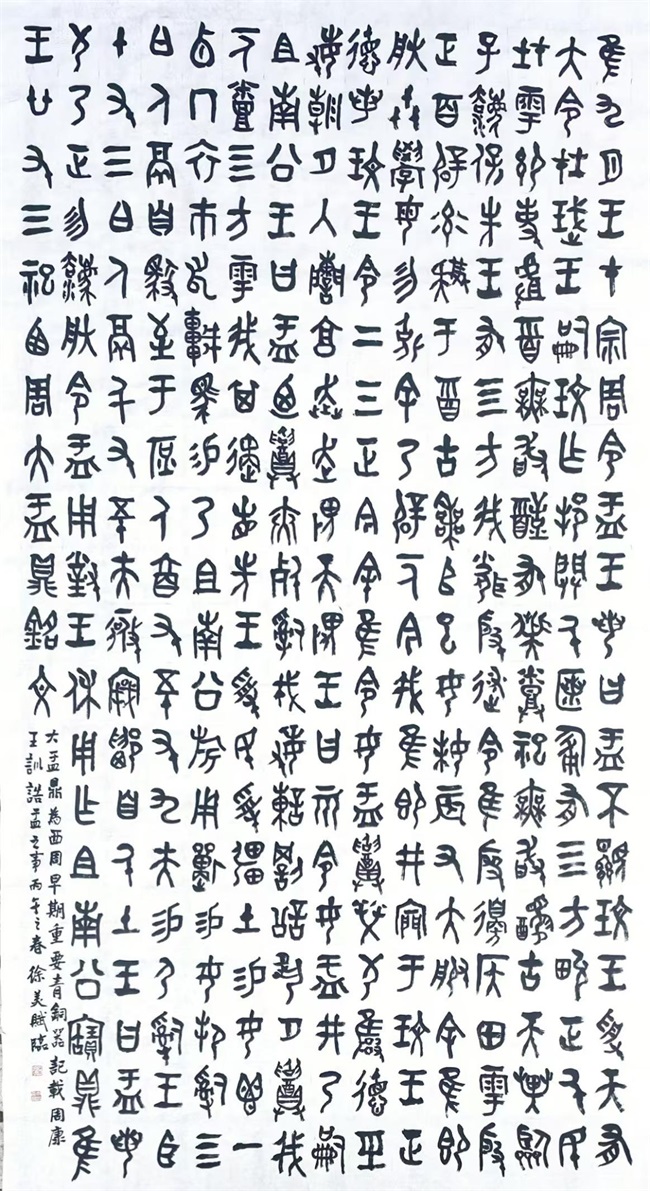 隹九月王才宗周令盂王若曰盂不顯玟王受天有
大令在珷王嗣玟乍邦闢氒匿匍有四方畯正氒民
在雩御事酉無敢有祡烝祀無敢古天異臨
子灋保先王有四方我聞殷述令隹殷邊侯田雩殷
正百辟率肄于酉古喪𠂤巳女妹辰又大服余隹即
朕小學女勿余乃辟一人今我隹即井㐭于玟王正
德若玟王令二三正今余隹令女盂召榮敬雍德巠
敏朝夕入讕享奔走畏天畏王曰而令女盂井乃嗣
且南公王曰盂乃召夾死司戎敏諫罰訟夙夕召我
一人烝四方雩我其遹省先王受民受疆土易女鬯一
卣冂衣巿舄車馬易乃且南公旂用狩易女邦司四
白人鬲自馭至于庶人六百又五十又九夫易尸司王臣
十又三白人鬲千又五十夫遷自氒土王曰盂若
敬乃正勿灋朕令盂用對王休用乍且南公寶鼎隹
王廿又三祀西周大盂鼎銘文
大盂鼎為西周早期重要青銅器記載周康
王訓誥盂之事丙午之春徐美賦臨